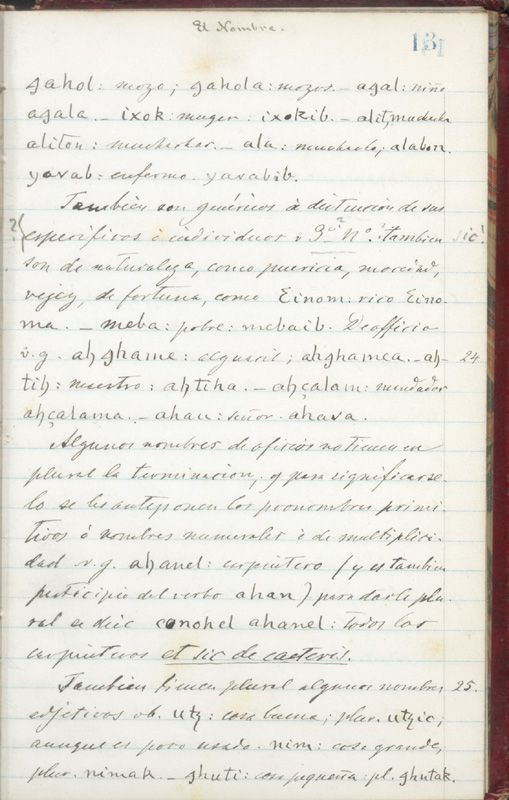 El Nombre.
131
gahol: mozo; gahola: mozos. – agal: niño
agala. – ixok: muger: ixokib. – alit, muchacha
aliton: muchachas. – ala: muchacho; alabon.
yavab: enfermo. yavabib.
Tambien son genéricos á distincion de sus
especificos é individuos v 3º 2 Nº: tambien sic!
son de naturaleza, como puericia, mocedad,
vejez, de fortuna, como Einom: rico Eino-
ma. – meba: pobre: mebaib. De officio
v.g. ahghame: alguacil; ahghamea. – ah- 24
tih: maestro: ahtiha. – ahçalam: mandador
ahçalama. – ahau: señor. ahava.
Algunos nombres de oficios no tienen en
plural la terminacion, y para significarse-
lo se les anteponen los pronombres primi-
tivos ó nombres numerales ó de multiplici-
dad v.g. ahanel: carpintero (y es tambien
participio del verbo ahan) para darle plu-
ral se dice conohel ahanel: todos los
carpinteros et sic de caeteris.
Tambien tienen plural algunos nombres 25.
adjetivos vb. utz: cosa buena; plur. utzic;
aunque es poco usado. nim: cosa grande,
plur. nimak. – ghuti: cosa pequeña: pl. ghutak.